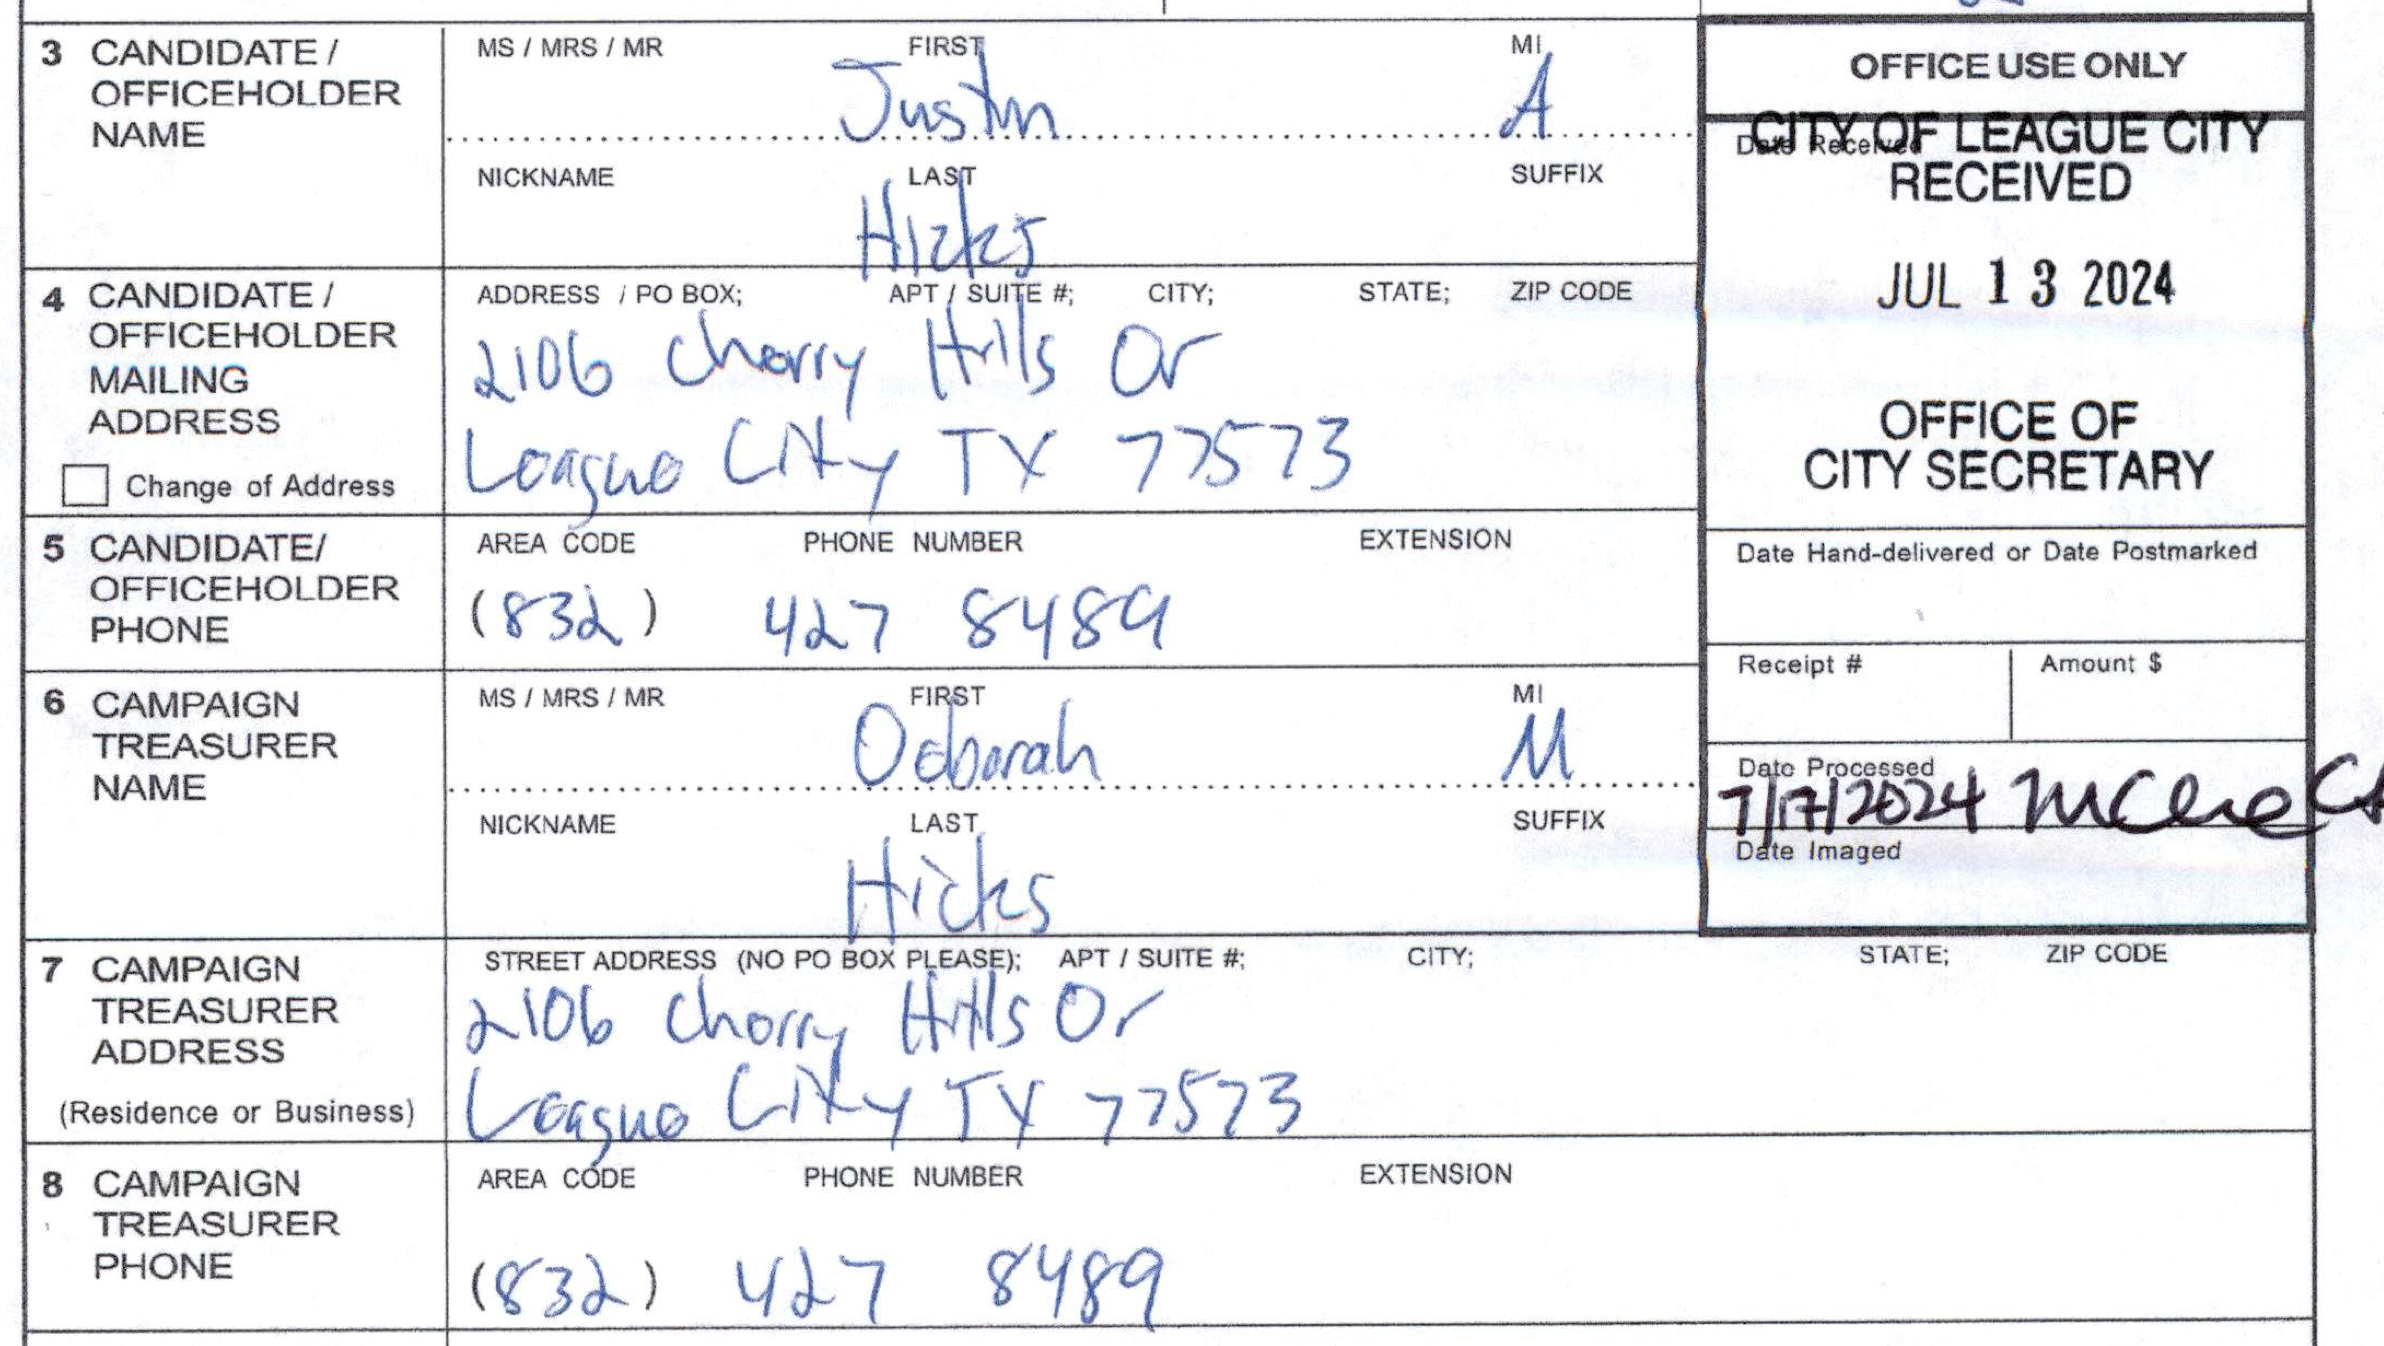 3 CANDIDATE / OFFICEHOLDER NAME
MS / MRS / MR FIRST MI
Justin A
NICKNAME LAST SUFFIX
Hicks
4 CANDIDATE / OFFICEHOLDER MAILING ADDRESS
Change of Address
ADDRESS / PO BOX; APT / SUITE #; CITY; STATE; ZIP CODE
2106 Cherry Hills Dr
League City TX 77573
5 CANDIDATE/ OFFICEHOLDER PHONE
AREA CODE PHONE NUMBER EXTENSION
(832) 427 8489
6 CAMPAIGN TREASURER NAME
MS / MRS / MR FIRST MI
Deborah M
NICKNAME LAST SUFFIX
Hicks
OFFICE USE ONLY
Date Received
CITY OF LEAGUE CITY
RECEIVED
JUL 13 2024
OFFICE OF
CITY SECRETARY
Date Hand-delivered or Date Postmarked
Receipt # Amount $
Date Processed
7/17/2024
Date Imaged
7 CAMPAIGN TREASURER ADDRESS
(Residence or Business)
STREET ADDRESS (NO PO BOX PLEASE); APT / SUITE #; CITY; STATE; ZIP CODE
2106 Cherry Hills Dr
League City TX 77573
8 CAMPAIGN TREASURER PHONE
AREA CODE PHONE NUMBER EXTENSION
(832) 427 8489